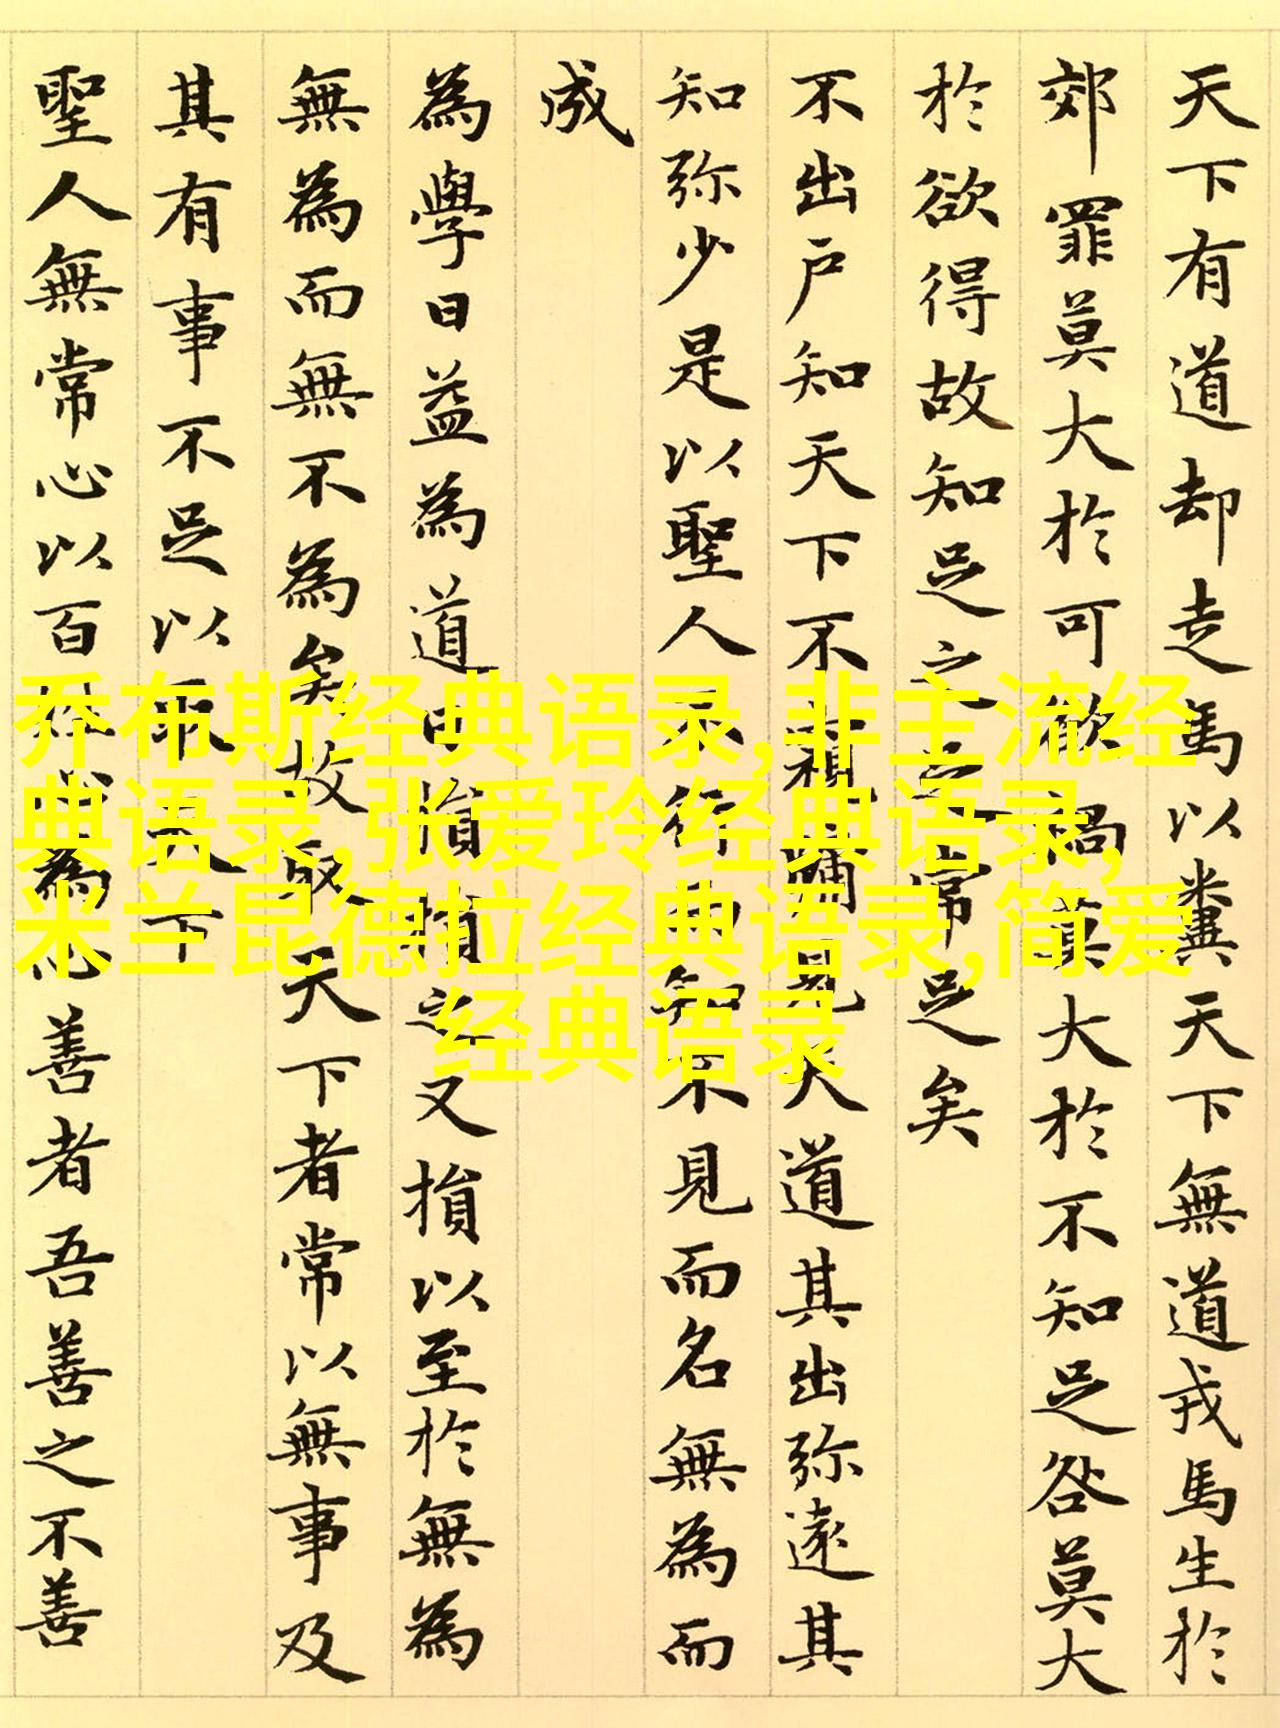 天下有道却走馬以糞天下無道戎馬生於
郊罪莫大於可欲禍莫大於不知足咎莫大
於欲得故知足之足常足矣
不出戶知天下不窺牖見天道其出弥遠其
知弥少是以聖人不行而知不見而名無為而
成
為學日益為道日損損之又損以至於無為
無為而無不為矣故取天下者常以無事及
其有事不足以取天下
聖人無常心以百姓心為心善者吾善之不善
乔布斯经典语录,非主流经
典语录,张爱玲经典语录,
米兰昆德拉经典语录,简爱
经典语录